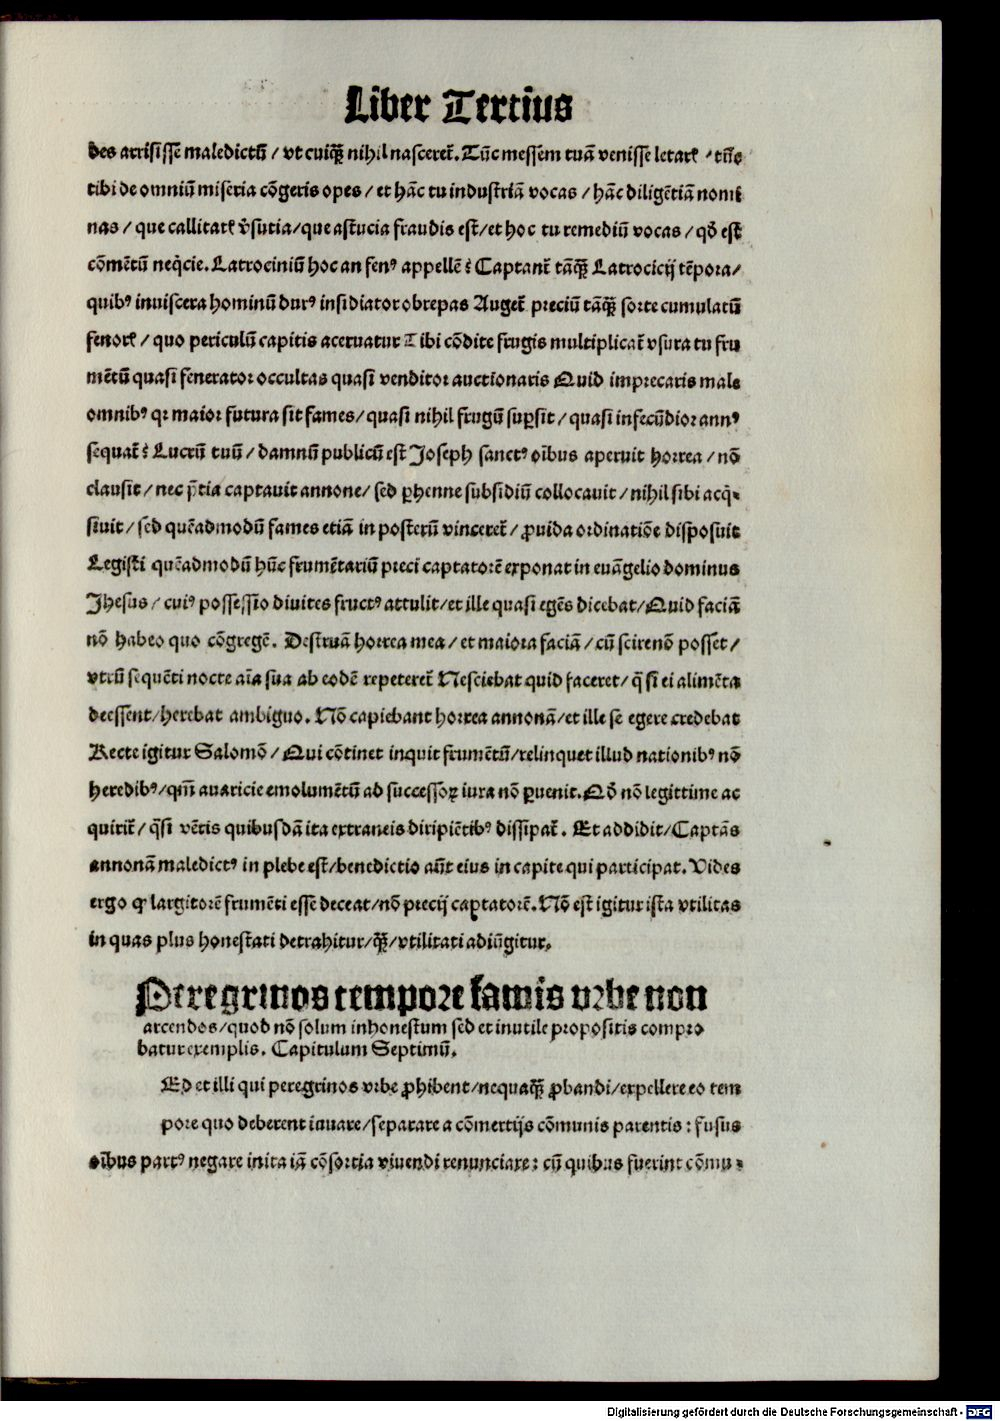 Liber Tertius
des arrisisse maledictū / vt cuiqȝ nihil nasceret̄. Tūc messem tuā venisse letaris / tūc
tibi de omniū miseria cōgeris opes / et hāc tu industriā vocas / hāc diligētiā nomi
nas / que calliditatis v̄sutia / que astucia fraudis est / et hoc tu remediū vocas / qđ est
cōmētū neq̄cie. Latrociniū hoc an fenꝰ appellē? Captant̄ tāqȝ Latrocicij tēpora /
quibꝰ inviscera hominū durꝰ insidiator obrepas Auget̄ preciū tāqȝ sorte cumulatū
fenoris / quo periculū capitis acervatur Tibi cōdite frugis multiplicat̄ vsura tu fru
mētū quasi fenerator occultas quasi venditor auctionaris Quid imprecaris male
omnibꝰ qꝛ maior futura sit fames / quasi nihil frugū suꝑsit / quasi infecūdior annꝰ
sequat̄? Lucrū tuū / damnū publicū est Joseph sanctꝰ oībus aperuit horrea / nō
clausit / nec p̄tia captavit annone / sed ꝑhenne subsidiū collocavit / nihil sibi acq̄-
sivit / sed quēadmodū fames etiā in posterū vinceret̄ / ꝓvida ordinatiōe disposuit
Legisti quēadmodū hūc frumētariū preci captatorē exponat in euāgelio dominus
Jhesus / cuiꝰ possessio divites fructꝰ attulit / et ille quasi egēs dicebat / Quid faciā
nō habeo quo cōgregē. Destruā horrea mea / et maiora faciā / cū scire nō posset /
vtrū sequēti nocte aīa sua ab eodē repeteret̄ Nesciebat quid faceret / q̄si ei alimēta
deessent / herebat ambiguo. Nō capiebant horrea annonā / et ille se egere credebat
Recte igitur Salomō / Qui cōtinet inquit frumētū / relinquet illud nationibꝰ nō
heredibꝰ / qm̄ avaricie emolumētū ad successoꝝ iura nō ꝑvenit. Qđ nō legittime ac
quirit̄ / q̄si vētis quibusdā ita extraneis diripiētibꝰ dissipat̄. Et addidit / Captās
annonā maledictꝰ in plebe est / benedictio aūt eius in capite qui participat. Vides
ergo ꝙ largitorē frumēti esse deceat / nō precij captatorē. Nō est igitur ista vtilitas
in quas plus honestati detrahitur / qȝ / vtilitati adiūgitur.
Peregrinos tempore famis vrbe non
arcendos / quod nō solum inhonestum sed et inutile propositis compro
batur exemplis. Capitulum Septimū.
Ed et illi qui peregrinos vrbe ꝓhibent / nequaqȝ ꝓbandi / expellere eo tem
pore quo deberent iuvare / separare a cōmertijs cōmunis parentis: fusus
oībus partꝰ negare inita iā cōsortia vivendi renunciare: cū quibus fuerint cōmu-
Digitalisierung gefördert durch die Deutsche Forschungsgemeinschaft - DFG